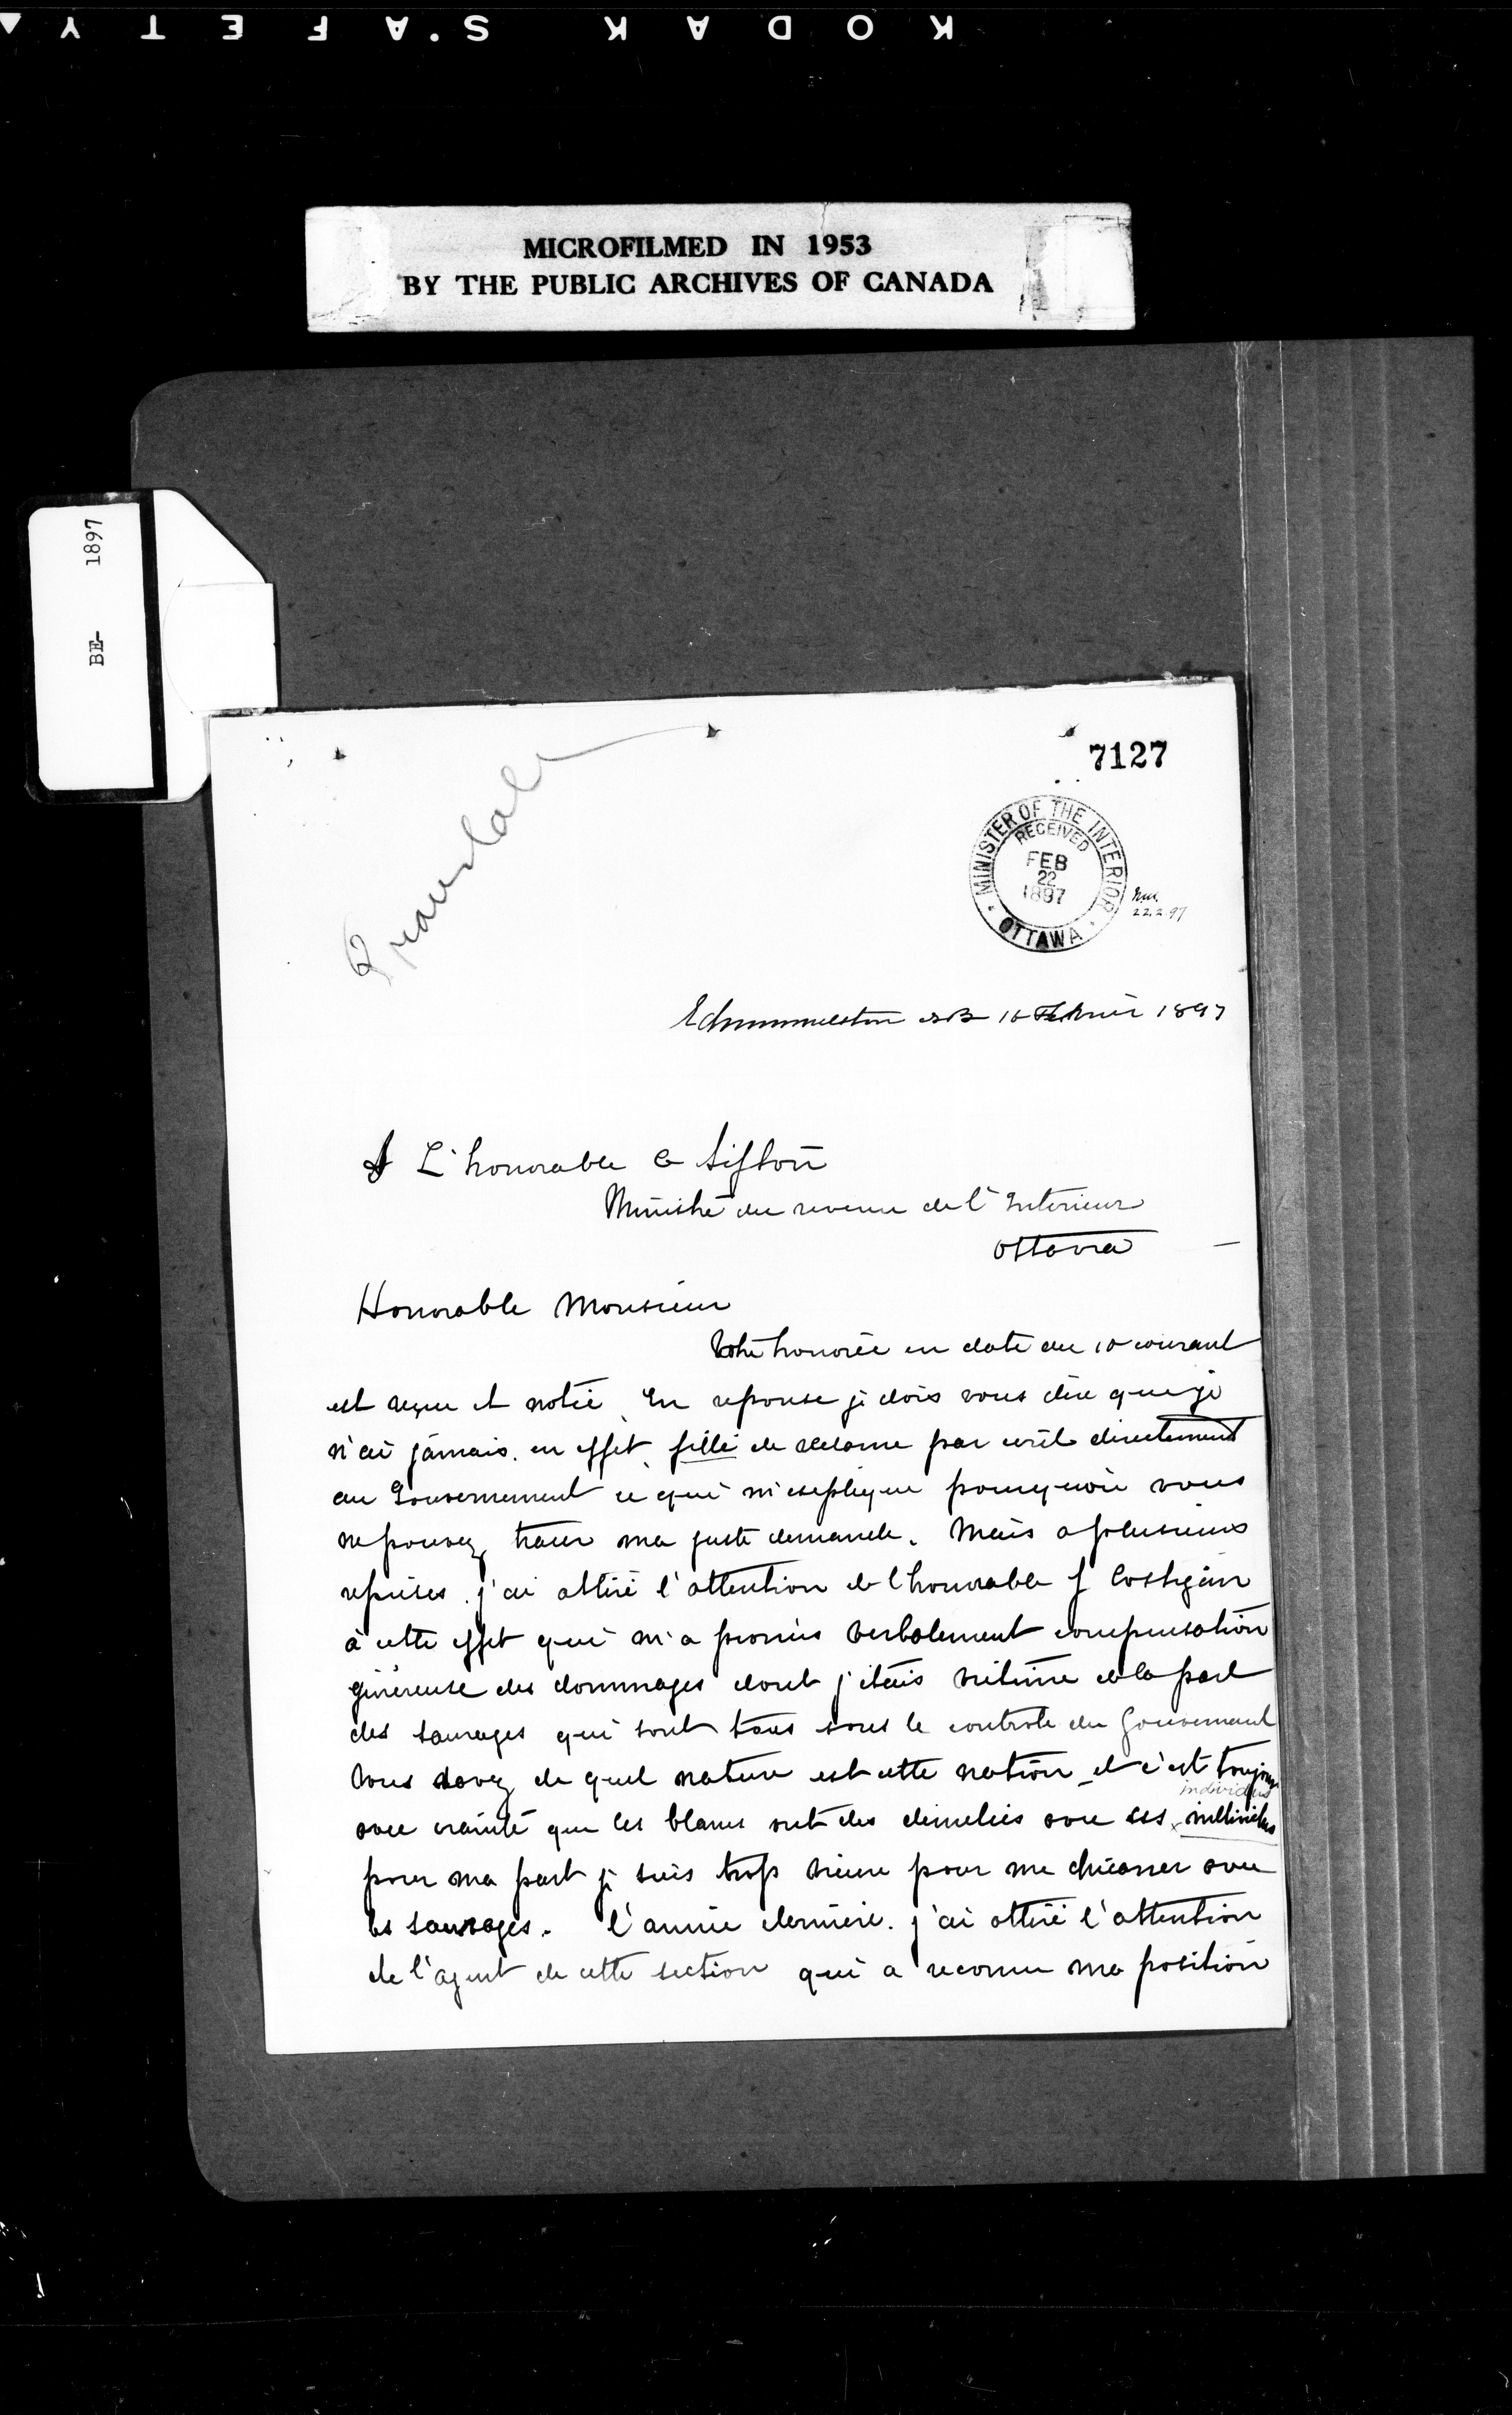 KODAK S.AFETY
MICROFILMED IN 1953
BY THE PUBLIC ARCHIVES OF CANADA
BE- 1897
7127
Translate
MINISTER OF THE INTERIOR
RECEIVED
FEB
22
1897
OTTAWA
22.2.97
Edmunston NB 16 Fevrier 1897
A L'honorable C Sifton
Ministre du revenu de l'Interieur
Ottawa
Honorable Monsieur
Votre honorée en date du 10 courant
est reçue et notée. En reponse je dois vous dire que je
n'ai jamais en effet fillé de reclame par ecrit directement
au Gouvernement ce qui m'explique pourquoi vous
ne pouvez tracer ma juste demande. Mais a plusieurs
reprises j'ai attiré l'attention de l'honorable J Costigan
à cette effet qui m'a promis verbalement compensation
génereuse des dommages dont j'etais victime de la part
des sauvages qui sont tous sous le controle du Gouvernement
Vous savez de quel nature est cette nation et c'est toujours
individus
avec crainte que les blancs ont des demelées avec ces
pour ma part je suis trop vieux pour me chicaner avec
les sauvages. l'année derniere j'ai attiré l'attention
de l'agent de cette section qui a reconnu ma position